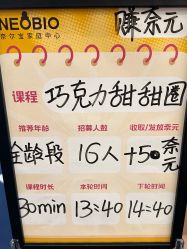 NEOBIO
奈尔宝家庭中心
赚奈元
课程 巧克力甜甜圈
推荐年龄 招募人数 收取/发放奈元
全龄段 16人 +50奈元
课程时长 本轮时间 下轮时间
30min 13:40 14:40